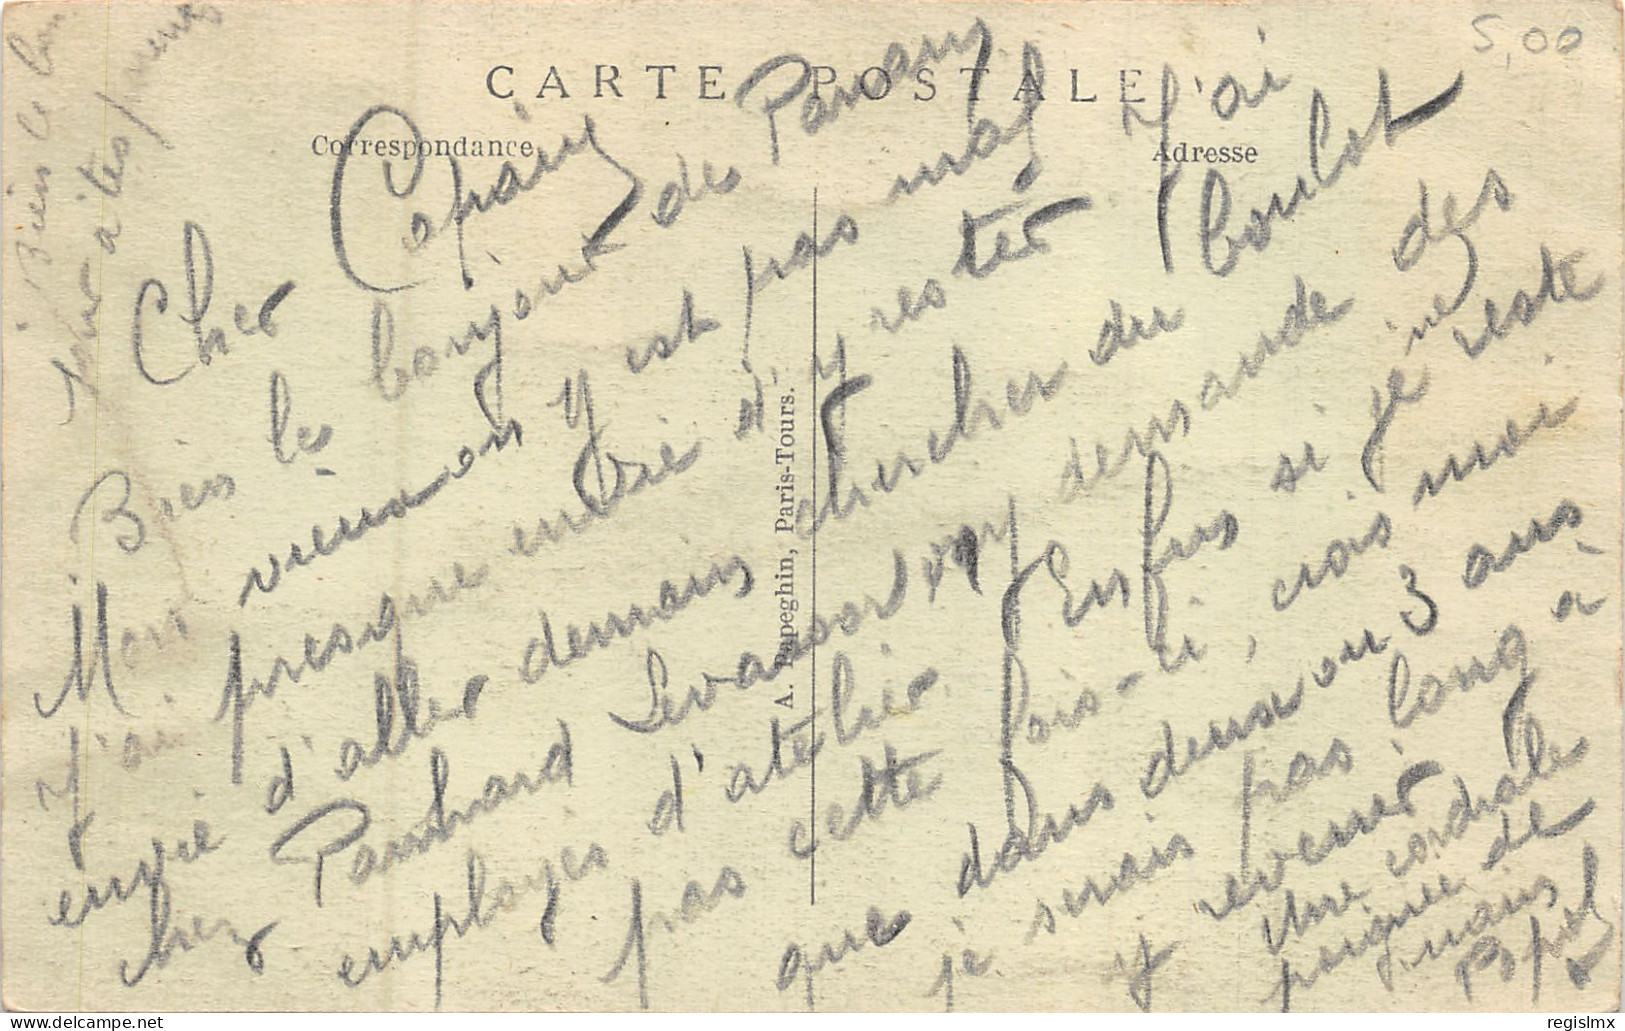 CARTE POSTALE
Correspondance
Adresse
5,00
Cher Copain
Bien le bonjour de Panam
Mon vieux on y est pas mal
J'ai presque envie d'y rester J'ai
envie d'aller demain chercher du boulot
chez Panhard Levassor on demande des
employés d'atelier Enfin si je ne reste
pas cette fois-ci, crois moi
que dans deux ou 3 ans
je serais pas long à
y revenir
Une cordiale
poignée de
mains
Bien le bon
jour à tes
A. Papeghin, Paris-Tours.
regislmx
www.delcampe.net